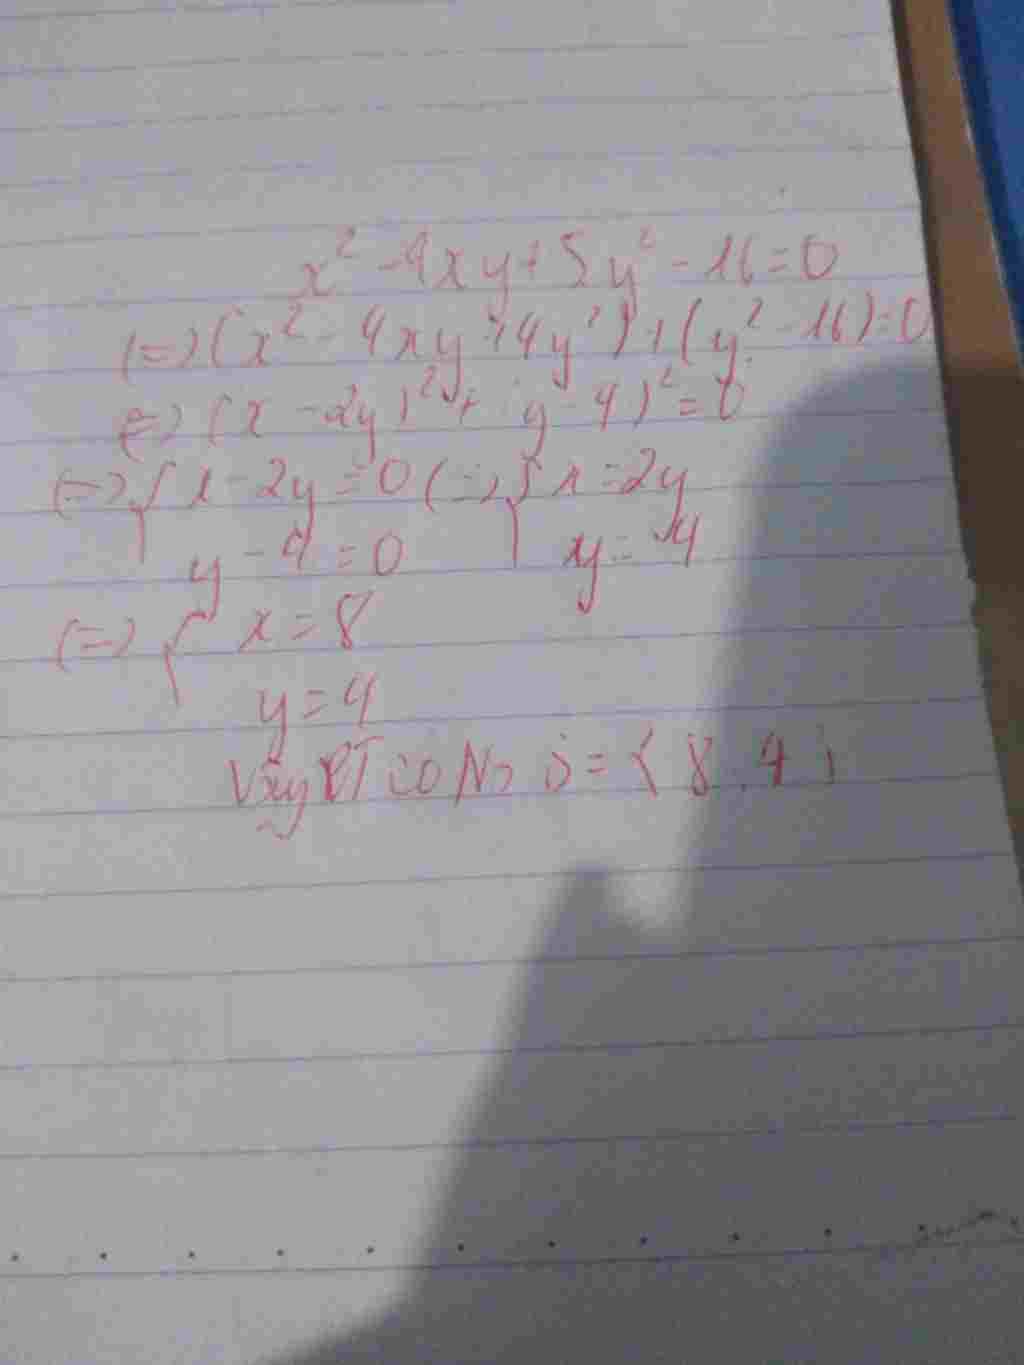 x² - 4xy + 5y² - 16 = 0
(=) (x² - 4xy + 4y²) + (y² - 16) = 0
(=) (x - 2y)² + (y - 4)² = 0
(=) { x - 2y = 0 (=) { x = 2y
y - 4 = 0 y = 4
(=) { x = 8
y = 4
Vậy PT có N S = { 8, 4 }